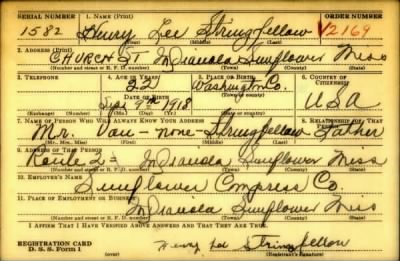 SERIAL NUMBER 1. NAME (Print) ORDER NUMBER
1582 Henry Lee Stringfellow V2169
(First) (Middle) (Last)
2. ADDRESS (Print)
CHURCH ST Indianola Sunflower Miss
(Number and street or R. F. D. number) (Town) (County) (State)
3. TELEPHONE 4. AGE IN YEARS 5. PLACE OF BIRTH 6. COUNTRY OF CITIZENSHIP
22 Washington Co.
DATE OF BIRTH (Town or county)
Sept 9th 1918 USA
(Exchange) (Number) (Mo.) (Day) (Yr.) (State or country)
7. NAME OF PERSON WHO WILL ALWAYS KNOW YOUR ADDRESS 8. RELATIONSHIP OF THAT PERSON
Mr. Van - none - Stringfellow Father
(Mr., Mrs., Miss) (First) (Middle) (Last)
9. ADDRESS OF THAT PERSON
Route 2 = Indianola Sunflower Miss
(Number and street or R. F. D. number) (Town) (County) (State)
10. EMPLOYER'S NAME
Sunflower Compress Co.
11. PLACE OF EMPLOYMENT OR BUSINESS
Indianola Sunflower Mis
(Number and street or R. F. D. number) (Town) (County) (State)
I AFFIRM THAT I HAVE VERIFIED ABOVE ANSWERS AND THAT THEY ARE TRUE.
REGISTRATION CARD
D. S. S. Form 1 (over) Henry Lee Stringfellow
(Registrant's signature)